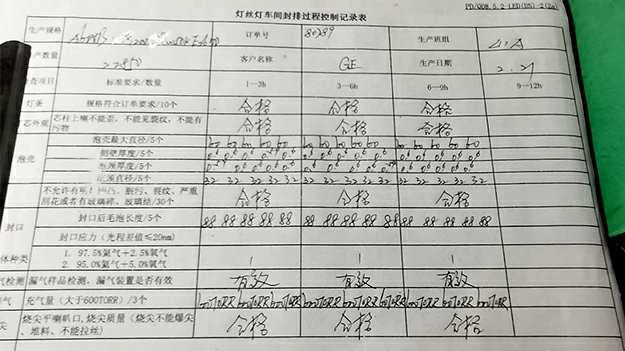 PD/QD8.5.2-LED(DS)-2(2a)
灯丝灯车间封排过程控制记录表
生产规格 订单号 80289 生产班组
生产数量 22850 客户名称 GE 生产日期 2.27
查项目 标准要求/数量 1—3h 3—6h 6—9h 9—12h
灯条 规格符合订单要求/10个 合格 合格 合格
芯外观 芯柱上喇不能歪、不能见裂纹，不能有污物 合格 合格 合格
泡壳 泡壳最大直径/5个 60 60 60 60 60 60 60 60 60 60 60 60 60 60
侧壁厚度/5个
厚度/5个
直径/5个 32 32 32 32 32 32 32 32 32 32 32 32 32 32 32
不允许有明 凹凸、脏污、裂纹、严重刮花或者有玻璃碎、玻璃结/30个 合格 合格 合格
封口 封口后毛泡长度/5个 88 88 88 88 88 88 88 88 88 88 88 88 88 88 88
封口应力（光程差值≤20nm）
体种类 1. 97.5%氦气+2.5%氧气 1 1 1
2. 95.0%氦气+5.0%氧气
气检测 漏气样品检测，漏气装置是否有效 有效 有效 有效
气 充气量（大于600TORR）/3个 600TORR 600TORR 600TORR 600TORR 600TORR 600TORR 600TORR 600TORR 600TORR
尖 烧尖平喇叭口，烧尖质量（烧尖不能爆尖、堆料、不能拉丝） 合格 合格 合格